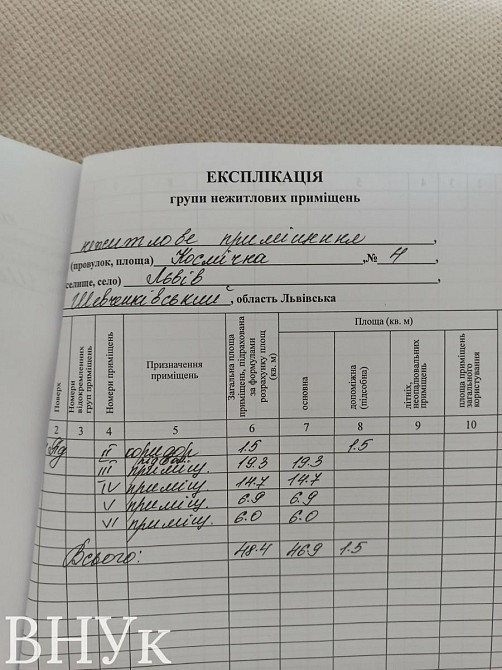 ЕКСПЛІКАЦІЯ
групи нежитлових приміщень
нежитлове приміщення,
(провулок, площа) Космічна, № 4,
селище, село) Львів,
Шевченківський, область Львівська
Поверх
Номери відокремлених груп приміщень
Номери приміщень
Призначення приміщень
Загальна площа приміщень, підрахована за формулами розрахунку площ (кв. м)
Площа (кв. м)
основна
допоміжна (підсобна)
літніх, неопалювальних приміщень
площа приміщень загального користування
2 3 4 5 6 7 8 9 10
Під II коридор 1.5 1.5
III підвал. приміщ. 19.3 19.3
IV приміщ. 14.7 14.7
V приміщ. 6.9 6.9
VI приміщ. 6.0 6.0
Всього: 48.4 46.9 1.5
ВНУк